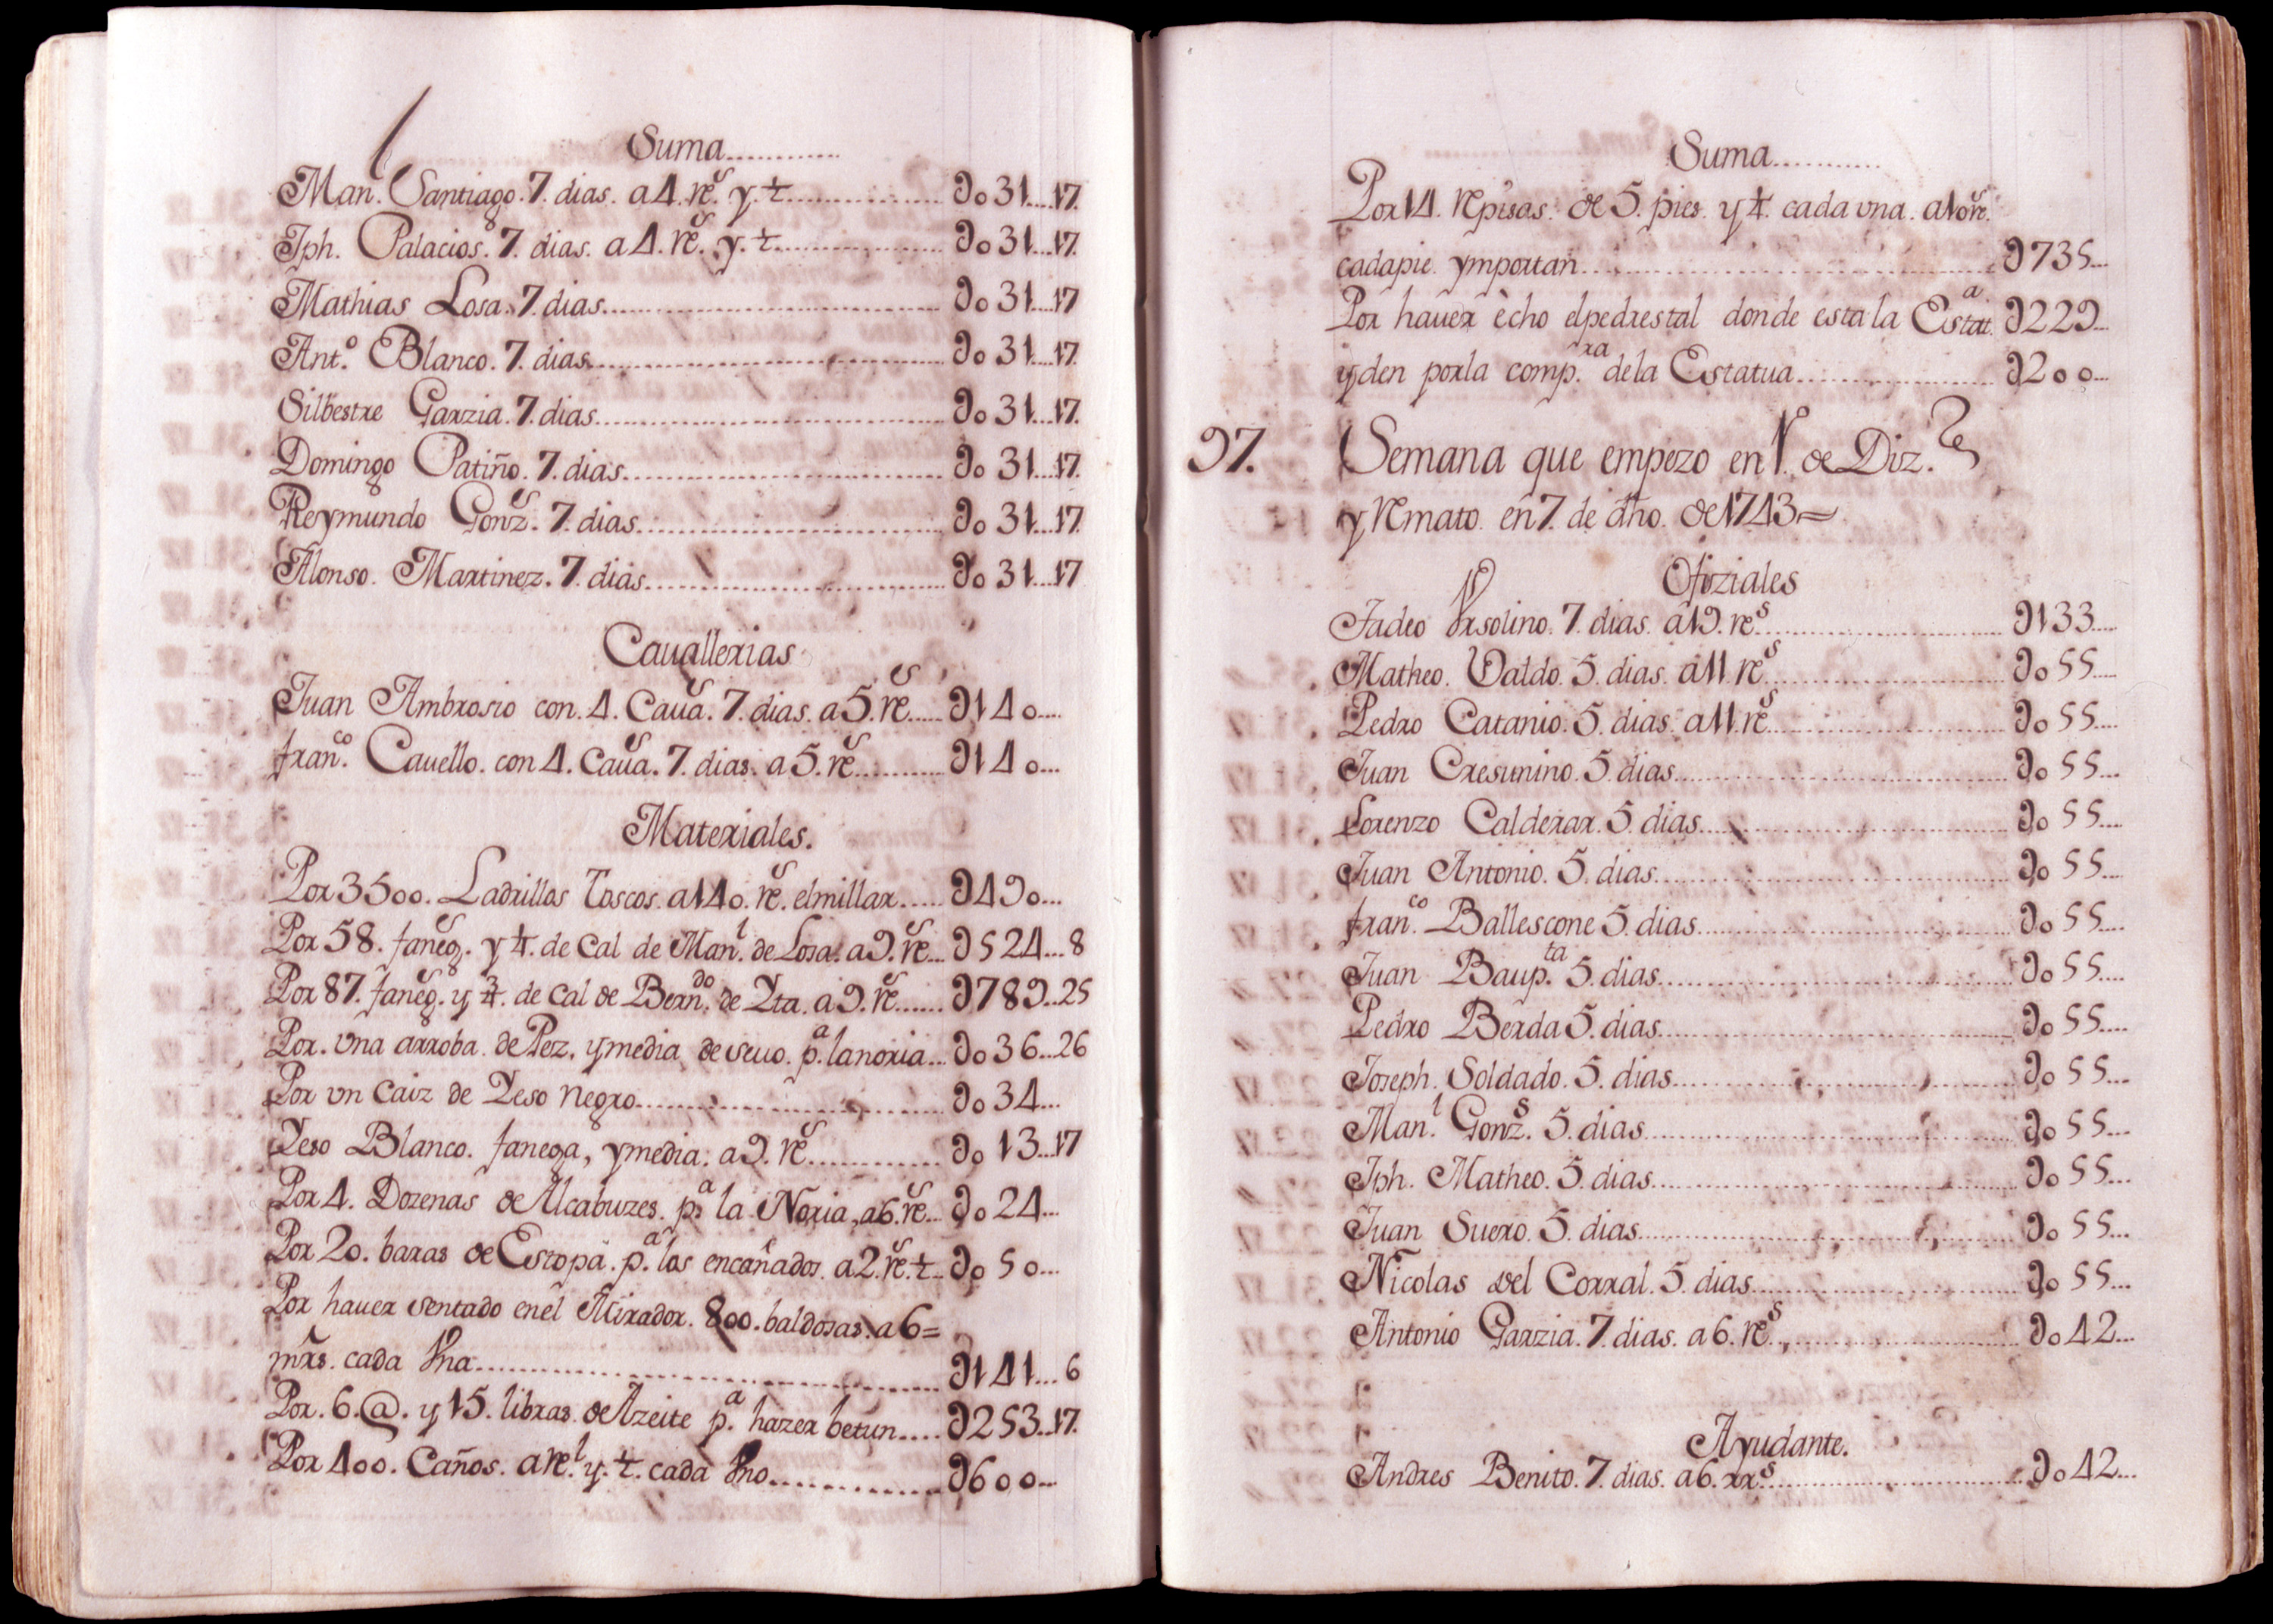 Suma............
Man. Santiago. 7. dias. a 4. rs. y. ½ ............ Do 31....17.
Jph. Palacios. 7. dias. a 4. rs. y. ½ ............ Do 31....17.
Mathias Losa. 7. dias............ Do 31....17
Ant.o Blanco. 7. dias............ Do 31....17.
Silbestre Garzia. 7. dias............ Do 31....17.
Domingo Patiño. 7. dias............ Do 31....17.
Reymundo Gonz.s 7. dias............ Do 31....17.
Alonso. Martinez. 7. dias............ Do 31....17
Cauallerias
Juan Ambrosio con. 4. Caua.s 7. dias. a 5. rs...... D140....
fran.co Cauello. con 4. Caua.s 7. dias. a 5. rs......... D140...
Materiales.
Por 3500. Ladrillos Toscos. a 140. rs. el millar..... D490...
Por 58. faneg.s y ¼. de Cal de Man.l de Losa. a 9. rs... D524...8
Por 87. faneg.s y ¾. de Cal de Bern.do de Yta. a 9. rs...... D789..25
Por. vna arroba. de Pez, y media de seuo. p.a la noria... Do36...26
Por vn Caiz de Yeso negro............ Do34...
Yeso Blanco. fanega, y media. a 9. rs............ Do 13...17
Por 4. Dozenas de Alcabuzes. p.a la Noria, a 6. rs... Do 24...
Por 20. baras de Estopa. p.a los encañados. a 2. rs. ½.. Do 50...
Por hauer sentado en el Mirador. 800. baldosas. a 6=
mrs. cada Vna............ D141....6
Por. 6. @. y 15. libras. de Azeite p.a hazer betun.... D253..17.
Por 400. Caños. a rl. y. ½. cada Vno............ D600...
Suma...........
Por 14. repisas. de 5. pies. y ¼. cada vna. a 10 rs.
cada pie. ymportan............ D735...
Por hauer echo el pedrestal donde esta la Estat.a D229...
yden por la comp.ra de la Estatua............ D200...
97. Semana que empezo en 1. de Diz.re
y remato. en 7. de dho. de 1743=
Ofiziales
Tadeo Vrsolino. 7. dias. a 19. rs............ D133....
Matheo. Valdo. 5. dias. a 11. rs............ Do 55....
Pedro Catanio. 5. dias. a 11. rs............ Do 55....
Juan Cresunino. 5. dias............ Do 55....
Lorenzo Calderar. 5. dias............ Do 55....
Juan Antonio. 5. dias............ Do 55....
fran.co Ballescone 5. dias............ Do 55....
Juan Baup.ta 5. dias............ Do 55....
Pedro Berda 5. dias............ Do 55....
Joseph. Soldado. 5. dias............ Do 55...
Man.l Gonz.s 5. dias............ Do 55...
Jph. Matheo. 5. dias............ Do 55...
Juan Suero. 5. dias............ Do 55...
Nicolas del Corral. 5. dias............ Do 55...
Antonio Garzia. 7. dias. a 6. rs............ Do 42...
Ayudante.
Andres Benito. 7. dias. a 6. rrs............ Do 42...